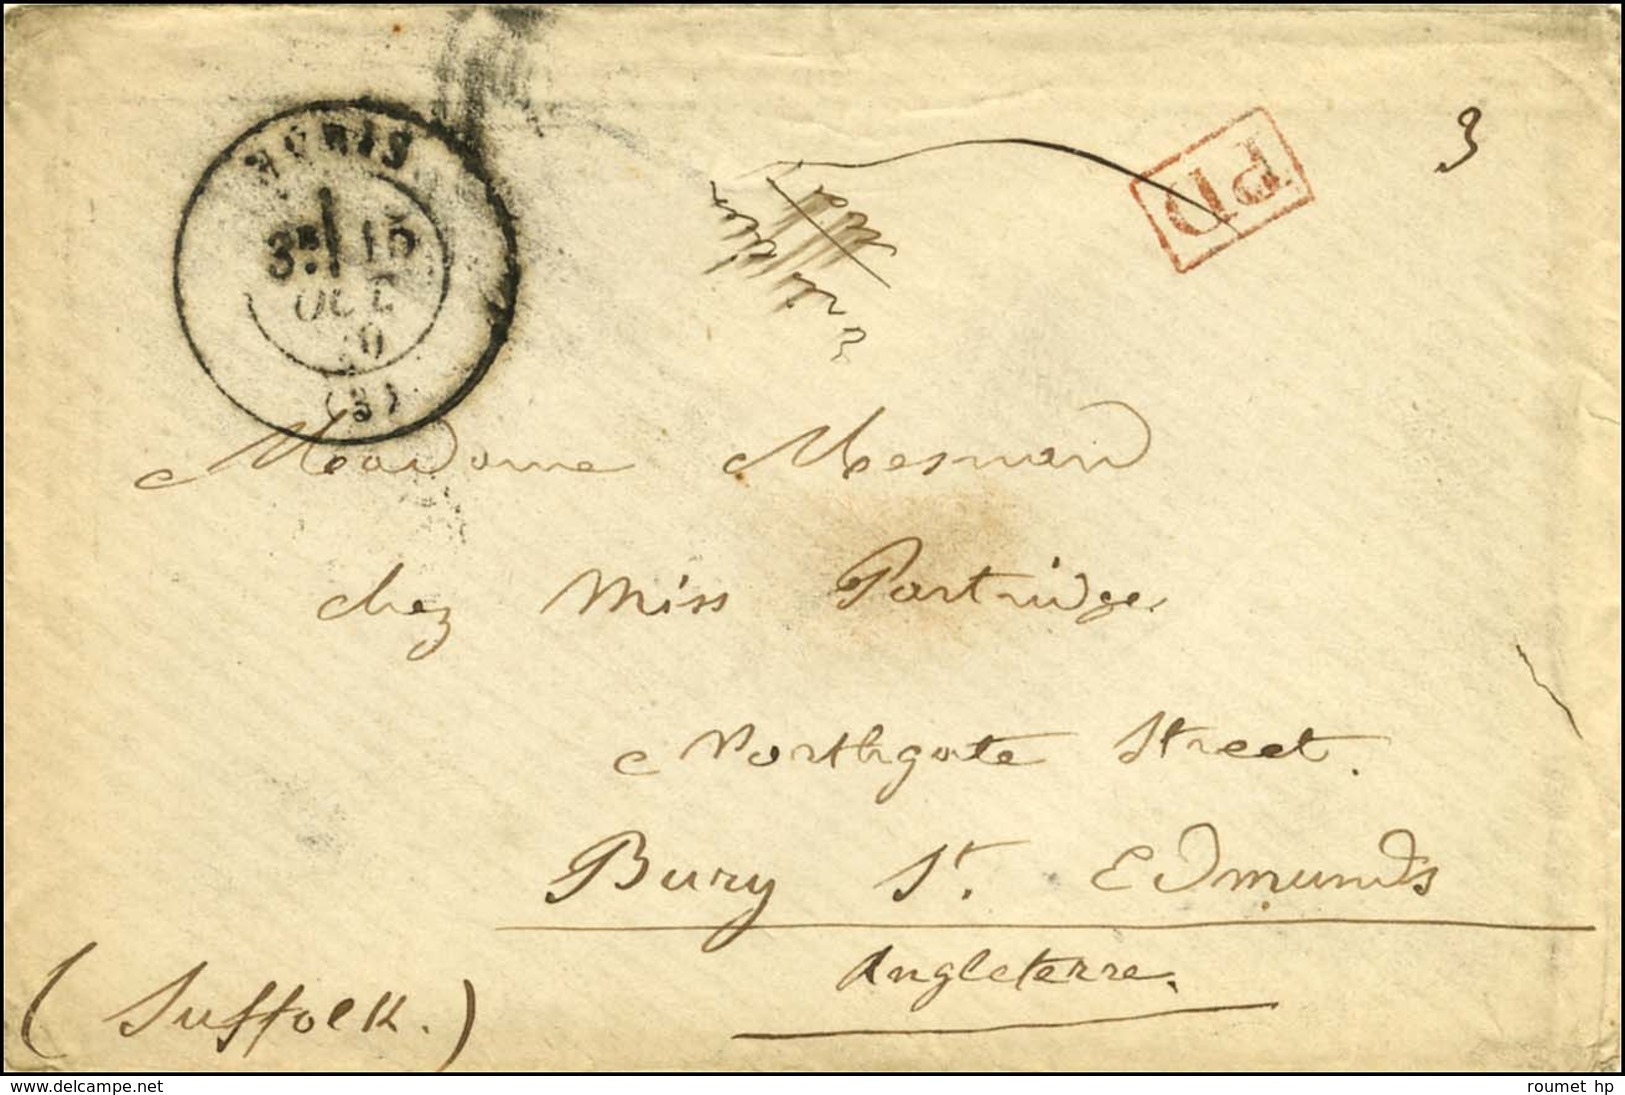 3
PD
3E 15
OCT
(3)
Madame Mesnard
chez Miss Partridge
Northgate Street.
Bury St. Edmunds
Angleterre.
(Suffolk.)
www.delcampe.net
roumet hp